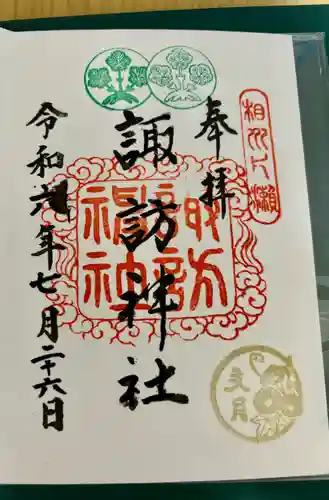 奉拝
相州片瀬
諏訪神社
諏訪神社
令和六年七月二十六日
文月